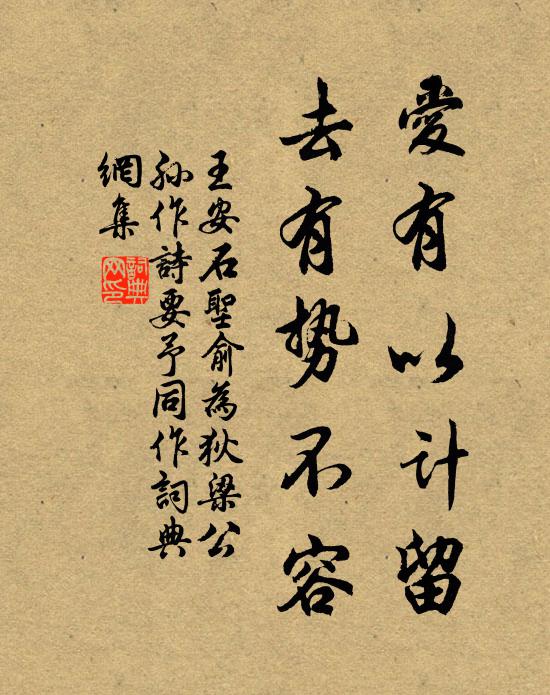 愛有以计留
去有势不容
王安石聖俞為狄梁公
孙作詩要予同作詞典
網集
詞典
网印